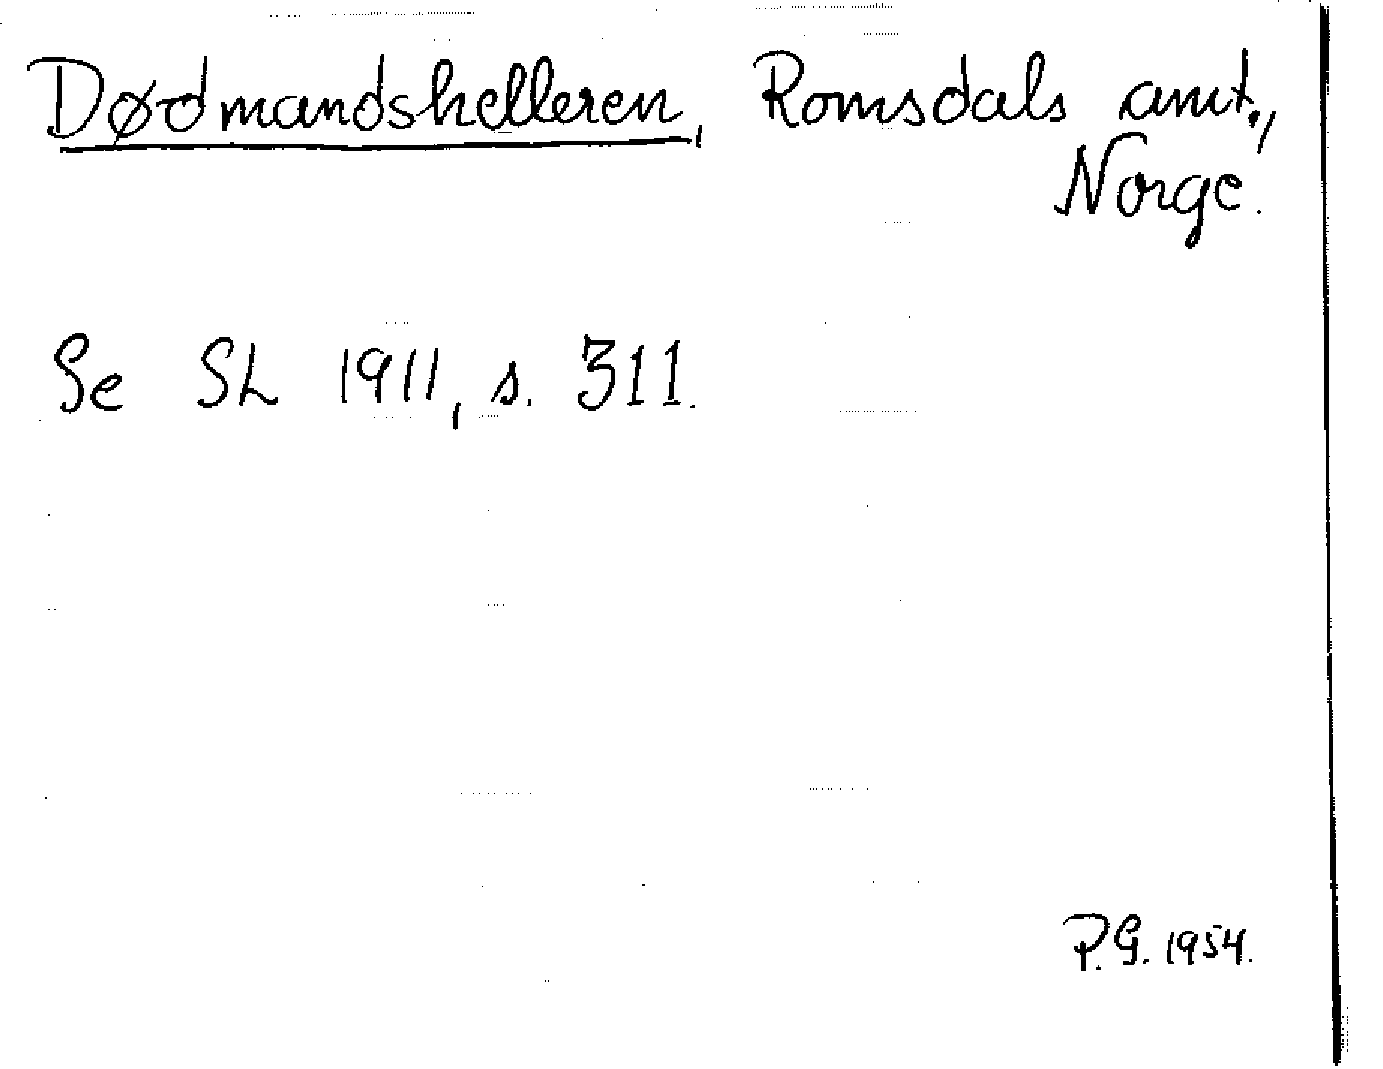 Dødmandshelleren, Romsdals amt.,
Norge.
Se SL 1911, s. 311.
P.G. 1954.